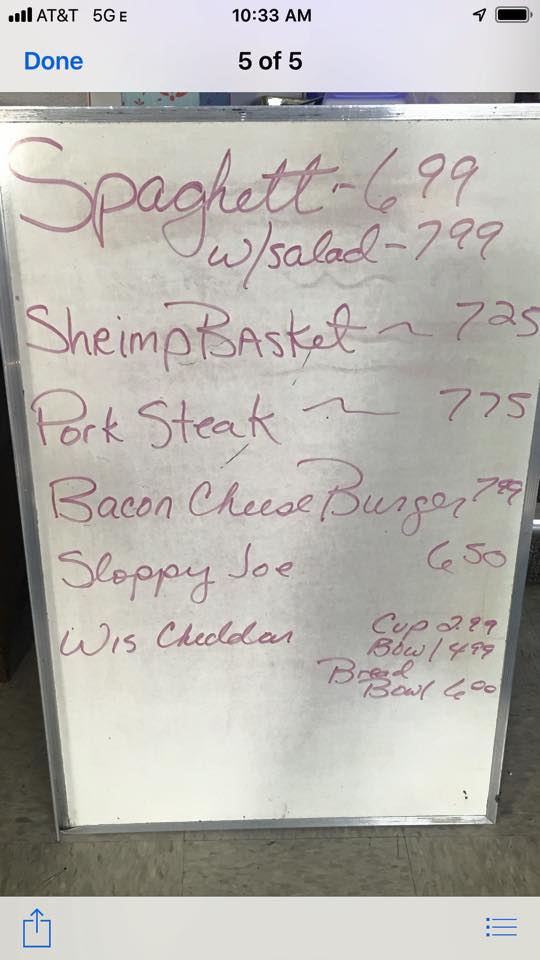 AT&T 5GE 10:33 AM
Done 5 of 5
Spaghetti - 6 99
w/salad - 7 99
Shrimp Basket ~ 7 25
Pork Steak ~ 7 75
Bacon Cheese Burger 7 99
Sloppy Joe 6 50
Wis Cheddar Cup 2.99
Bowl 4 99
Bread
Bowl 6 00